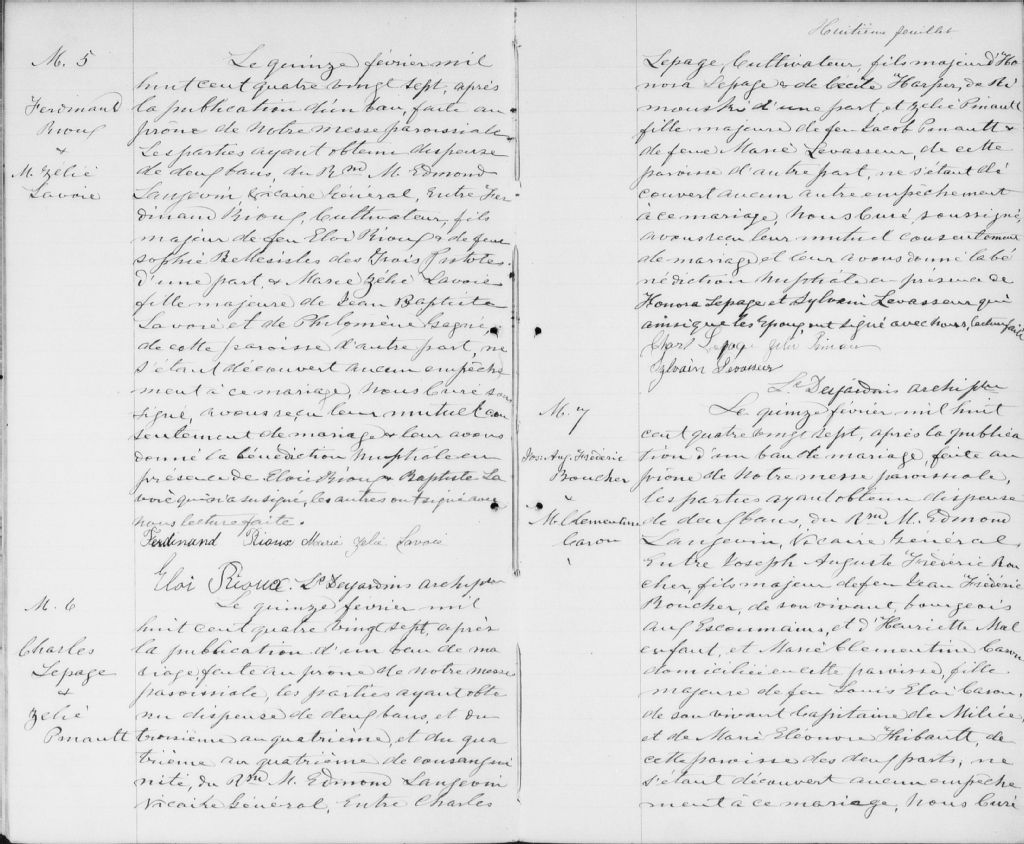 M. 5
Ferdinand
Rioux
&
M. Zélie
Lavoie
Le quinze février mil
huit cent quatre vingt sept, après
la publication d'un ban, faite au
prône de notre messe paroissiale
Les parties ayant obtenu dispense
de deux bans, du Rnd M. Edmond
Langevin, Vicaire Général, Entre Fer
dinand Rioux, Cultivateur, fils
majeur de feu Eloi Rioux & de feue
Sophie Bellesisles des Trois Pistoles
d'une part, & Marie Zélie Lavoie
fille majeure de Jean Baptiste
Lavoie et de Philomène Gagné,
de cette paroisse d'autre part, ne
s'étant découvert aucun empêche
ment à ce mariage, Nous Curé sous
signé, avons reçu leur mutuel con
sentement de mariage & leur avons
donné la bénédiction nuptiale en
présence de Eloi Rioux & Baptiste La
voie qui n'a su signé, les autres ont signé avec
nous lecture faite.
Ferdinand Rioux Marie Zélie Lavoie
Eloi Rioux. Ls Desjardins archiptre
M. 6
Charles
Lepage
&
Zélie
Pinault
Le quinze février mil
huit cent quatre vingt sept, après
la publication d'un ban de ma
riage, faite au prône de notre messe
paroissiale, les parties ayant obte
nu dispense de deux bans, et du
troisième au quatrième, et du qua
trième au quatrième de consangui
nité, du Rnd M. Edmond Langevin
Vicaire Général, Entre Charles
Huitième feuillet
Lepage, Cultivateur, fils majeur d'Ho
nora Lepage & de Cécile Harper, de Ri
mouski d'une part, et Zélie Pinault
fille majeure de feu Jacob Pinault &
de feue Marie Levasseur, de cette
paroisse d'autre part, ne s'étant dé
couvert aucun autre empêchement
à ce mariage, Nous Curé soussigné,
avons reçu leur mutuel consentement
de mariage et leur avons donné la bé
nédiction nuptiale en présence de
Honora Lepage et Sylvain Levasseur qui
ainsi que les Epoux ont signé avec nous, lecture faite
Charl Lepage Zélie Pinault
Sylvain Levasseur
Ls Desjardins archiptre
M. 7
Jos. Aug. Frédéric
Boucher
&
M. Clementine
Caron
Le quinze février mil huit
cent quatre vingt sept, après la publica
tion d'un ban de mariage, faite au
prône de Notre messe paroissiale,
les parties ayant obtenu dispense
de deux bans, du Rnd M. Edmond
Langevin, Vicaire Général.
Entre Joseph Auguste Frédéric Bou
cher, fils majeur de feu Jean Frédéric
Boucher, de son vivant, bourgeois
aux Escoumains, et d'Henriette Mal
enfant, et Marie Clementine Caron
domiciliée en cette paroisse, fille
majeure de feu Louis Eloi Caron,
de son vivant Capitaine de Milice,
et de Marie Eléonore Thibault, de
cette paroisse des deux parts, ne
s'étant découvert aucun empêche
ment à ce mariage, Nous Curé